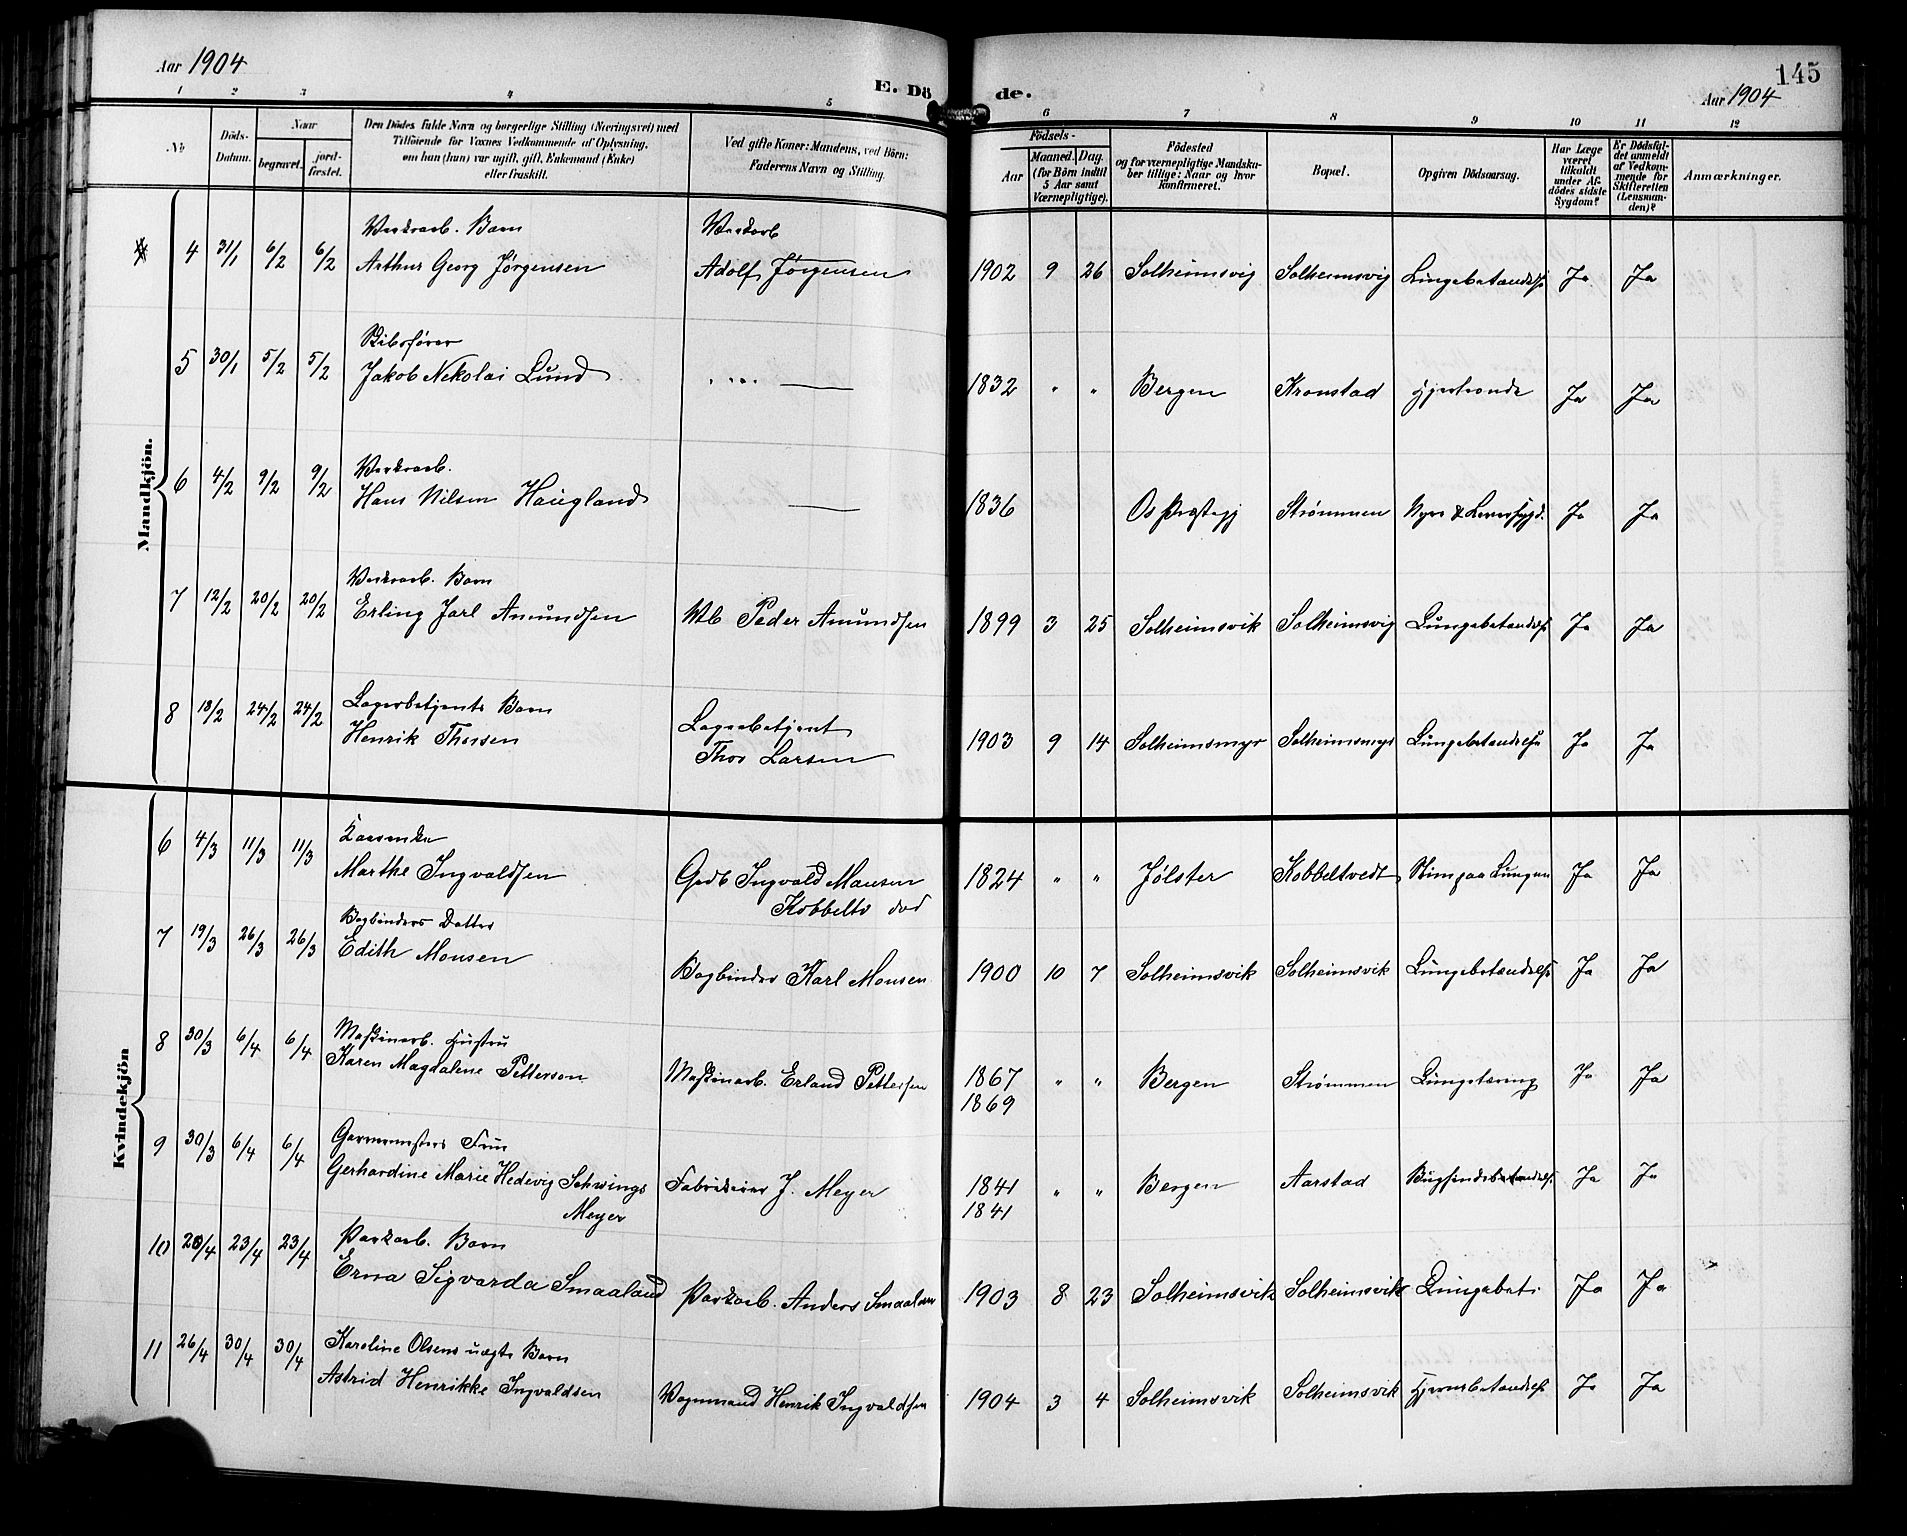 Aar 1904
E. Dö de.
145
Aar 1904
1 2 3 4 5 6 7 8 9 10 11 12
No
Döds-Datum.
Naar
begravet.
jordfæstet.
Den Dödes fulde Navn og borgerlige Stilling (Næringsvei) med
Tilföiende for Voxnes Vedkommende af Oplysning,
om han (hun) var ugift, gift, Enkemand (Enke)
eller fraskilt.
Ved gifte Koner: Mandens, ved Börn:
Faderens Navn og Stilling.
Födsels-
Aar
Maaned. Dag.
(for Börn indtil
5 Aar samt
Værnepligtige).
Födested
og for værnepligtige Mandska-
ber tillige: Naar og hvor
konfirmeret.
Bopæl.
Opgiven Dödsaarsag.
Har Læge
været
tilkaldt
under Af-
dödes sidste
Sygdom?
Er Dödsfal-
det anmeldt
af Vedkom-
mende for
Skifteretten
(Lensman-
den)?
Anmærkninger.
Mandkjön.
Værksarb. Barn Verkarb
4 31/1 6/2 6/2 Arthur Georg Jørgensen Adolf Jørgensen 1902 9 26 Solheimsvig Solheimsvig Lungebetændelse Ja Ja
Skibsfører
5 30/1 5/2 5/2 Jakob Nekolai Lund " " " — 1832 " " Bergen Kronstad Hjerteonde Ja Ja
Værksarb.
6 4/2 9/2 9/2 Hans Nilsen Haugland — 1836 Os Præstegj Strømmen Nyre & Leversygd. Ja Ja
Værksarb. Barn
7 12/2 20/2 20/2 Erling Jarl Amundsen Peder Amundsen 1899 3 25 Solheimsvik Solheimsvig Lungebetændelse Ja Ja
Lagerbetjents Barn Lagerbetjent
8 18/2 24/2 24/2 Henrik Thorsen Thor Larsen 1903 9 14 Solheimsmyr Solheimsmyr Lungebetændelse Ja Ja
Kvindekjön
6 4/3 11/3 11/3 Marthe Ingvaldsen Ingvald Monsen 1824 " " Jølster Kobbeltvedt Lungen Ja Ja
Kobbeltv død
Bogbinders Datter
7 19/3 26/3 26/3 Edith Monsen Bogbinder Karl Monsen 1900 10 7 Solheimsvik Solheimsvik Lungebetændelse Ja Ja
Maskinarb. Hustru
8 30/3 6/4 6/4 Karen Magdalene Petterson Maskinarb. Erland Pettersen 1867 " " Bergen Strømmen Lungetæring Ja Ja
1869
Garvermesters Frue
9 30/3 6/4 6/4 Gerhardine Marie Hedevig Schwings Fabrikeier J. Meyer 1841 " " Bergen Aarstad Ja Ja
Meyer 1841
Parkarb. Barn
10 20/4 23/4 23/4 Erna Sigvarda Smaaland Parkarb. Anders Smaaland 1903 8 23 Solheimsvik Solheimsvik Lungebet. Ja Ja
Karoline Olsens uægte Barn
11 26/4 30/4 30/4 Astrid Henrikke Ingvaldsen Vognmand Henrik Ingvaldsen 1904 3 4 Solheimsvik Solheimsvik Hjernebetændelse Ja Ja